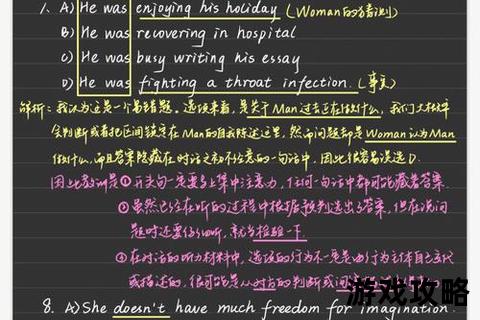 7. A) He was enjoying his holiday (Woman的猜测)
B) He was recovering in hospital
C) He was busy writing his essay
D) He was fighting a throat infection. (事实)
解析: 我认为这是一个易错题。选项来看,是关于Man过去正在做什么,我们大概率
会判断或者把区间锁定在Man的自我陈述这里,然而问题却是Woman认为Man
做什么,而且答案隐藏在对话之初不经意的一句话中,因此很容易误选D.
因此教训是①开头句一定要马上集中注意力,任何一句话中都可能藏着答案.
②虽然已经在听的过程中根据预判选出了答案,但在说问
题时还要仔细听,就当检验一下.
④在对话的听力材料中,选项的行为不一定是由行为主体自己交代
或描述的,很可能是从对方的判断或
8. A) She doesn't have much freedom for imagination
游戏攻略